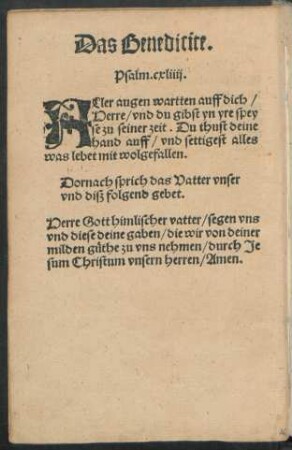 Das Benedicite.
Psalm.cxliiij.
ALler augen wartten auff dich /
Herre / vnd du gibst yn yre spey
se zu seiner zeit. Du thust deine
hand auff / vnd settigest alles
was lebet mit wolgefallen.
Dornach sprich das Vatter vnser
vnd diß folgend gebet.
Herre Gott himlischer vatter / segen vns
vnd diese deine gaben / die wir von deiner
milden güthe zu vns nehmen / durch Je
sum Christum vnsern herren / Amen.